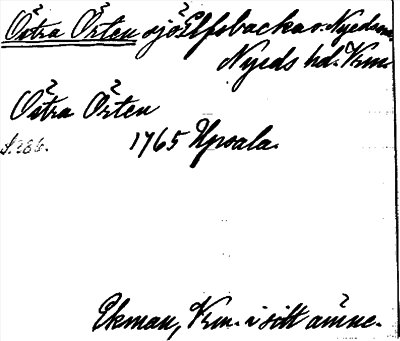 Östra Örten sjö Elfsbacka o. Nyeds sn
Nyeds hd. Krm.
Östra Örten
S. 286. 1765 Upsala.
Ekman, Krm. i sitt ämne.